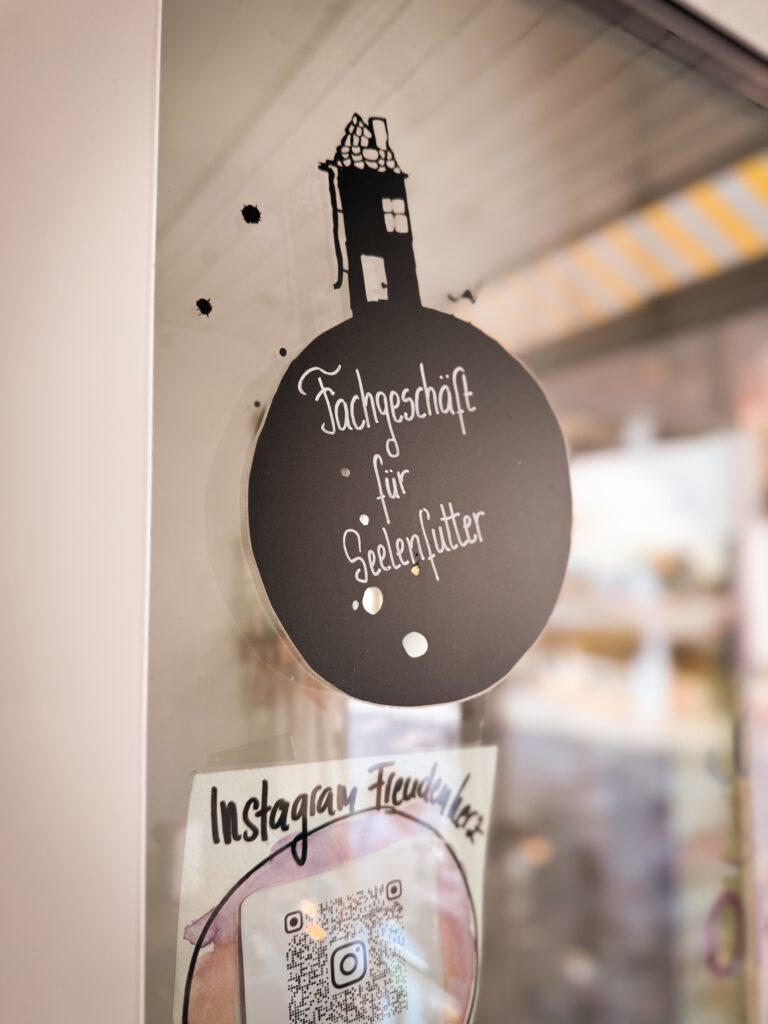 Fachgeschäft
für
Seelenfutter
Instagram Freudenherz